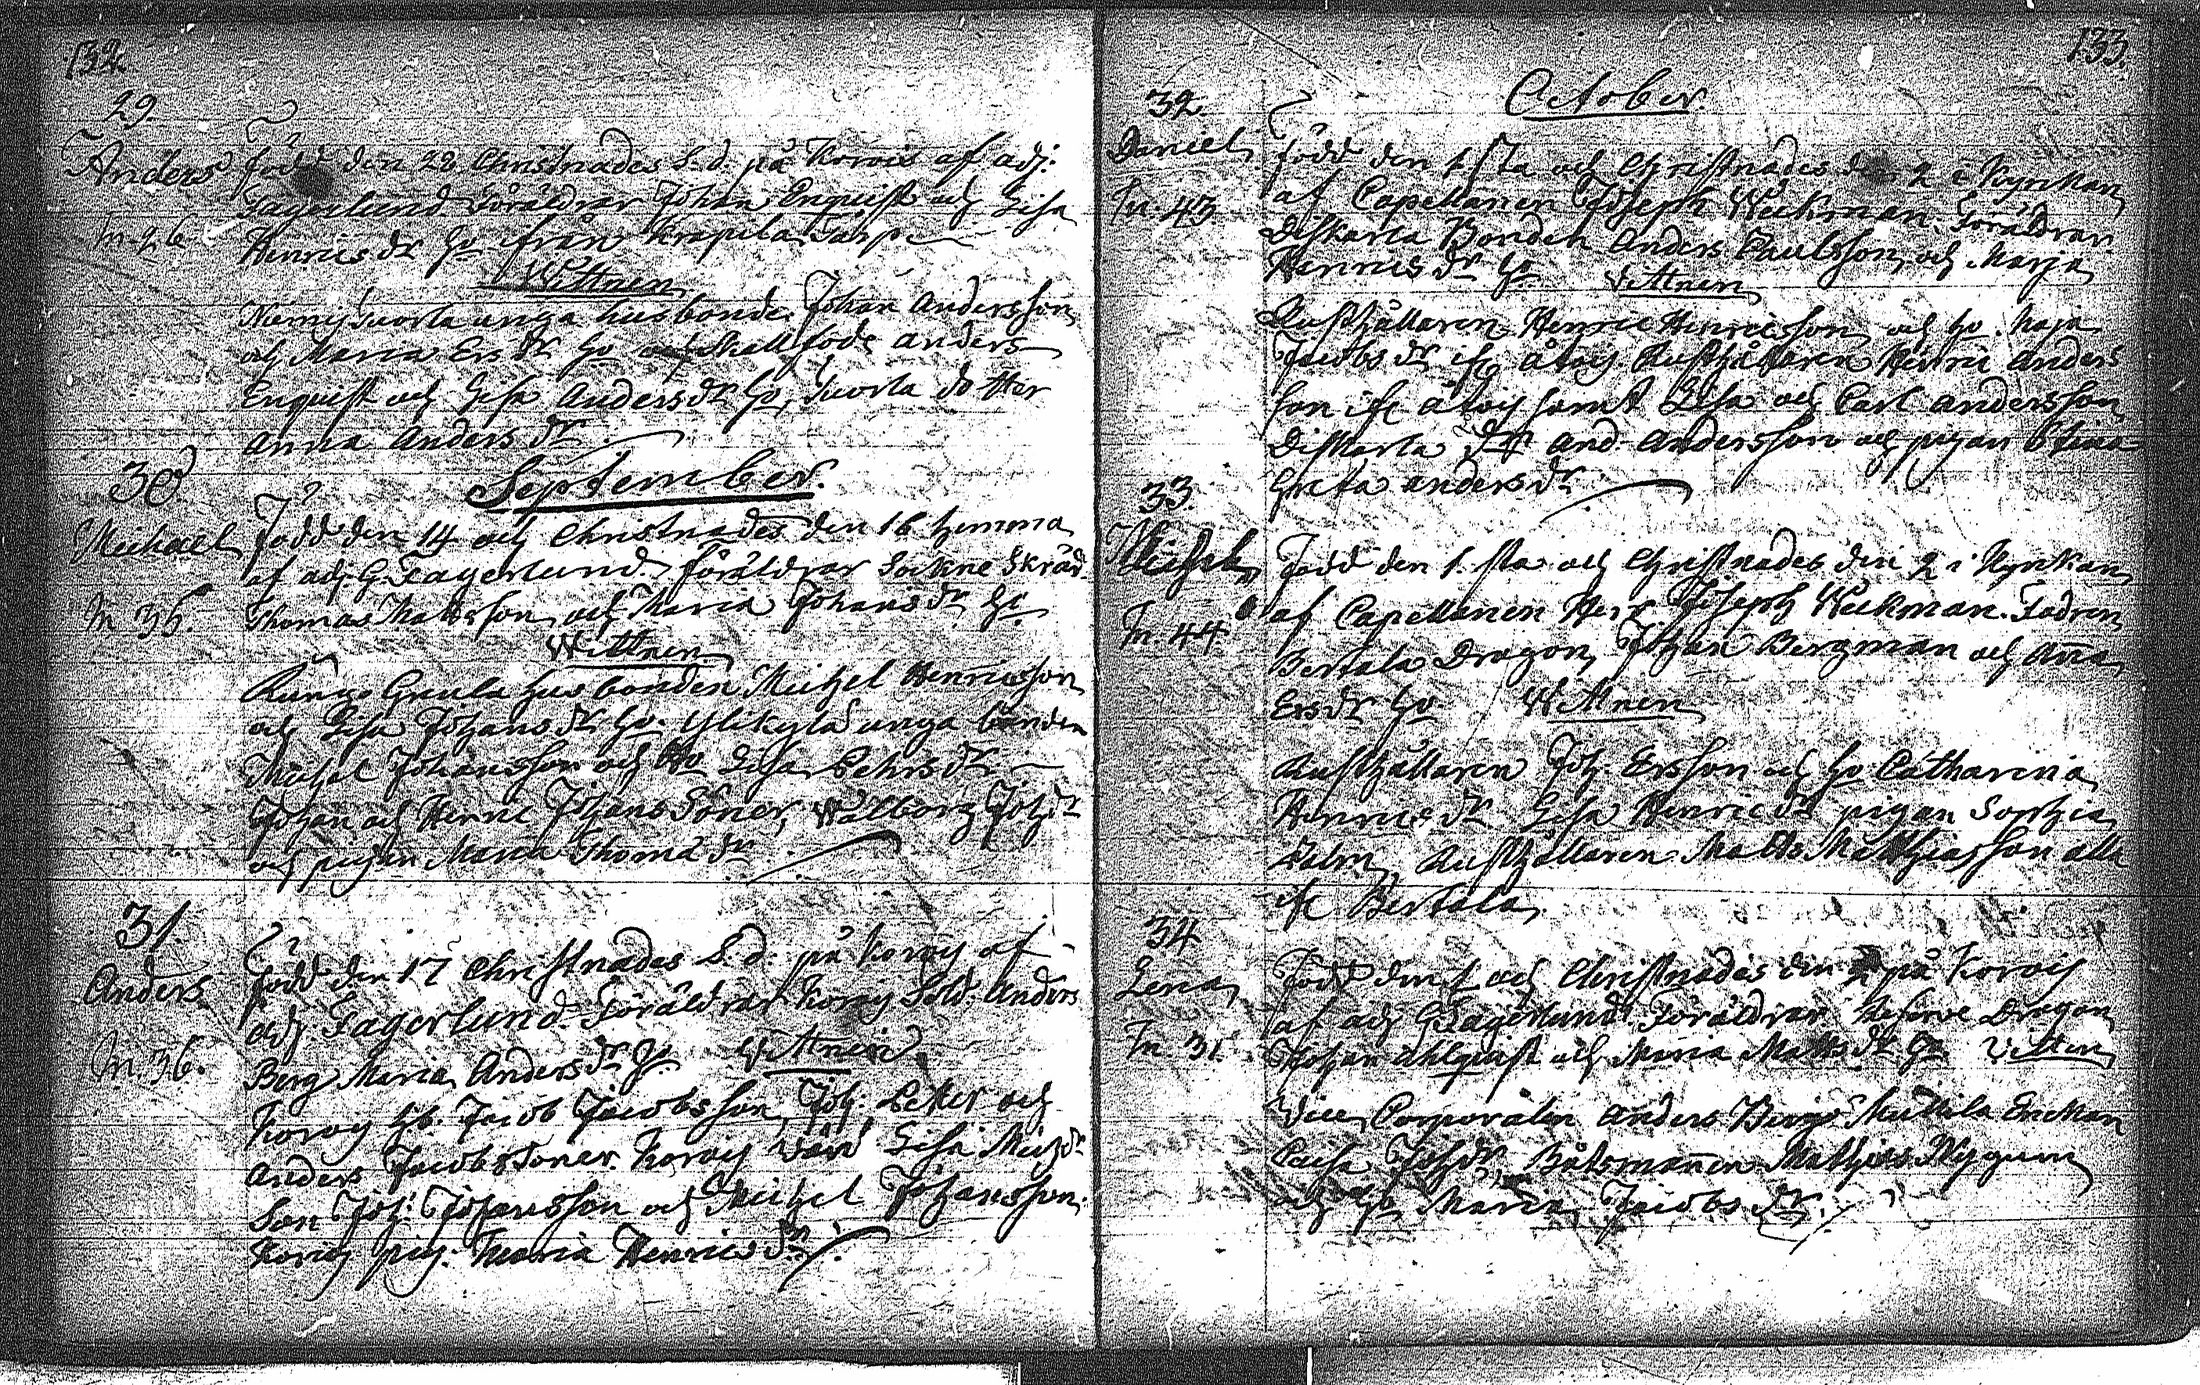 132.
29
Anders
född den 28 Christnades S. d. på Korvois af adj:
Fagerlund Föräldrar Johan Enquist och Lisa
Henrics dr ho från Krapila Torp
Wittnen
Niemis Juorla unga husbonde Johan Andersson
och Maria Ers dr ho Anders
Enquist och Lisa Anders dr ho, Juorla dotter
Anna Anders dr
30
September.
Michael
Född den 14 och Christnades den 16 hemma
af adj. G. Fagerlund, föräldrar Sockne Skräd.
m 35.
Thomas Mattsson och Maria Johans dr ho
Wittnen
husbonden Michel Henricsson
och Lisa Johans dr ho. Ylikylä unga bonden
Michel Johansson och ho Lisa Pehrs dr
Johan och Henric Johans Söner, Walborg Joh dr
och pigan Maria Thomæ dr
31.
Anders
född den 17 Christnades S. d. på Korvoj af
adj. Fagerlund. Föräldrar Korvoj Sold. Anders
m. 36.
Berg Maria Anders dr ho. Wittnen
Korvoj hb. Jacob Jacobsson, Joh: Petter och
Anders Jacobs Söner. Korvoj Lisa Mich dr
Son Joh: Johansson och Michel Johansson.
Korvoj pig. Maria Henrics dr
133.
October.
32.
Daniel
född den 1sta och Christnades den 2 i Kyrckan
af Capellanen Joseph Weckman. Föräldrar
m. 43
Diskarla Bonden Anders Paulsson och Marja
Henrics dr ho Wittnen
Rusthållaren Henric Henricsson och ho Maja
Jacobs dr ifr. Rusthållaren Henric Anders
son ifr samt Lisa och Carl Andersson
Diskarla And. Andersson och pigan Stina
Greta Anders dr
33
Michel
Född den 1.sta och Christnades den 2 i Kyrckan
af Capellanen Herr Joseph Weckman. Fadren
m. 44
Bertala Dragon Johan Bergman och Anna
Ers dr ho Wittnen
Rusthållaren Joh. Ersson och ho Catharina
Henrics dr Lisa Henrics dr pigan Sophia
Palm, Rusthållaren Matts Matthiasson alla
ifr Bertala
34
Lena
Född den 1 och Christnades den 2 på Korvoij
af adj. G Fagerlund. Föräldrar Reserve Dragon
m. 31.
Johan Ahlquist och Maria Matts dr ho Vittnen
Vice Corporalen Anders Berg Enckan
Caisa Joh dr, Båtsmannen Mathias Nygren
och ho Maria Jacobs dr.